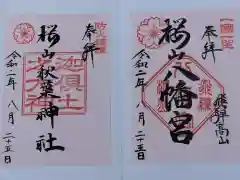 奉拝
桜山秋葉神社
令和二年八月二十五日
奉拝
桜山八幡宮
飛騨高山
令和二年八月二十五日